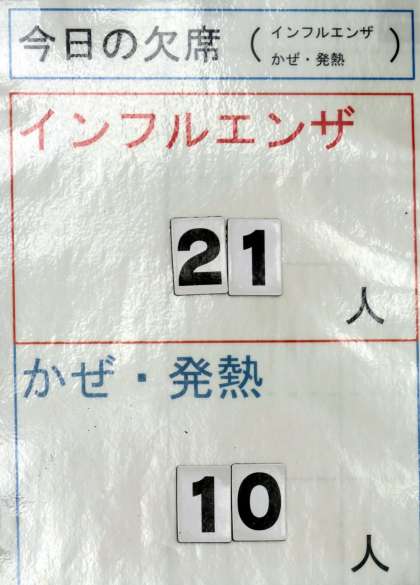 今日の欠席（インフルエンザ
かぜ・発熱）
インフルエンザ
21
人
かぜ・発熱
10
人